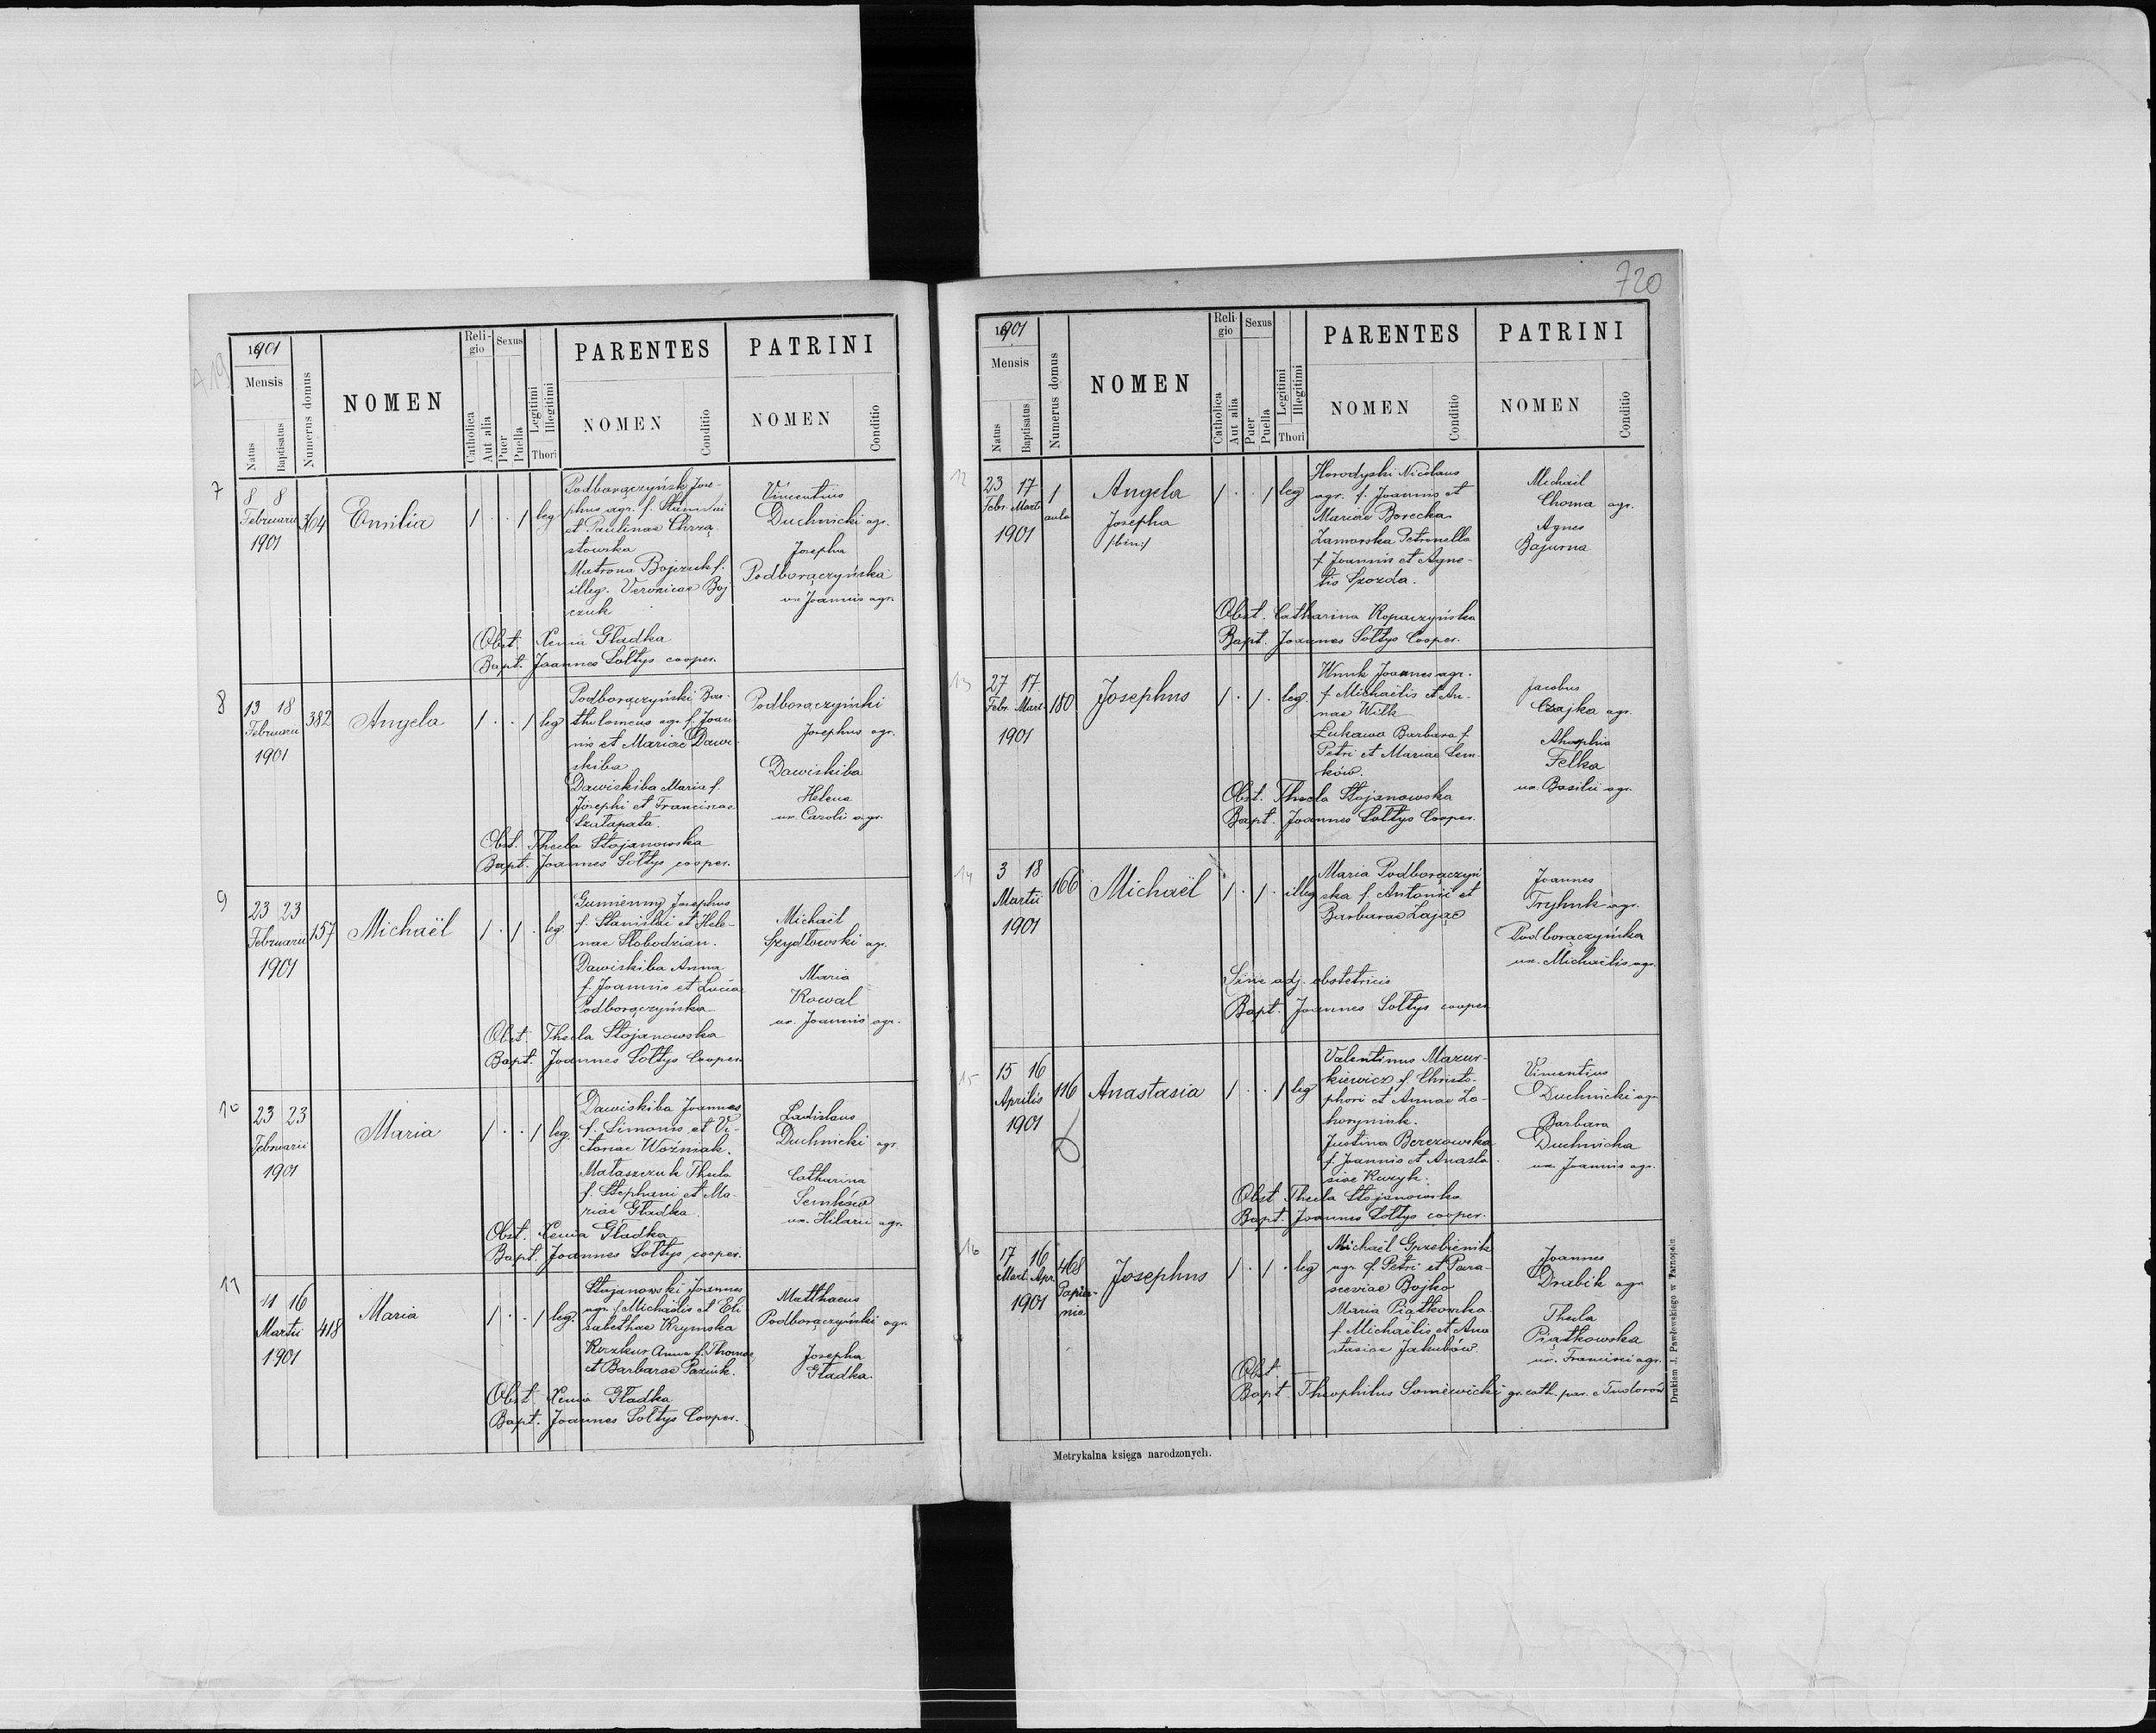 720
A 19
1901
Mensis
Natus
Baptisatus
Numerus domus
NOMEN
Reli-
gio
Catholica
Aut alia
Sexus
Puer
Puella
Legitimi
Illegitimi
Thori
PARENTES
NOMEN
Conditio
PATRINI
NOMEN
Conditio
7
8 8
Februarii
1901
364
Emilia
1 . . 1 leg
Podborączyńsk Jose-
phus agr. f. Stanislai
et Paulinae Chrzą
stowska
Matrona Bojczuk f.
illeg. Veronicae Boj
czuk
Vincentius
Duchnicki agr.
Josepha
Podborączyńska
ux Joannis agr.
Obst. Xenia Gładka
Bapt. Joannes Sołtys cooper.
8
13 18
Februarii
1901
382
Angela
1 . . 1 leg
Podborączyński Bar-
tholomeus agr. f. Joan
nis et Mariae Dawi-
skiba
Dawiskiba Maria f.
Josephi et Franciscae
Szałapata.
Podborączyński
Josephus agr.
Dawiskiba
Helena
ux. Caroli agr.
Obst. Thecla Stojanowska
Bapt. Joannes Sołtys cooper.
9
23 23
Februarii
1901
157
Michaël
1 . 1 . leg
Gumienny Josephus
f. Stanislai et Hele-
nae Słobodzian.
Dawiskiba Anna
f. Joannis et Lucia
Podborączyńska
Michaël
Szydłowski agr.
Maria
Kowal
ux. Joannis agr.
Obst. Thecla Stojanowska
Bapt. Joannes Sołtys Cooper.
10
23 23
Februarii
1901
Maria
1 . . 1 leg.
Dawiskiba Joannes
f. Simonis et Vi-
ctoriae Woźniak.
Mataszczuk Thecla
f. Stephani et Ma-
riae Gładka.
Ladislaus
Duchnicki agr.
Catharina
Semków
ux. Hilarii agr.
Obst. Xenia Gładka
Bapt. Joannes Sołtys cooper.
11
11 16
Martii
1901
418
Maria
1 . . 1 leg.
Stojanowski Joannes
agr. f. Michaëlis et Eli
sabethae Krymska
Anna f. Thomae
et Barbarae Paźnik.
Matthaeus
Podborączyński agr.
Josepha
Gładka.
Obst. Xenia Gładka
Bapt. Joannes Sołtys Cooper.
1901
Mensis
Natus
Baptisatus
Numerus domus
NOMEN
Reli-
gio
Catholica
Aut alia
Sexus
Puer
Puella
Legitimi
Illegitimi
Thori
PARENTES
NOMEN
Conditio
PATRINI
NOMEN
Conditio
12
23 17
Febr. Marti
1901
1
aula
Angela
Josepha
/bin:/
1 . . 1 leg
Horodyski Nicolaus
agr. f. Joannis et
Mariae Borecka.
Zamorska Petronella
f. Joannis et Agne-
tis Szozda.
Michaël
Choma agr.
Agnes
Bajurna
Obst. Catharina Kopaczyńska
Bapt. Joannes Sołtys Cooper.
13
27 17
Febr. Mart.
1901
180
Josephus
1 . 1 . leg.
Wnuk Joannes agr.
f. Michaëlis et An-
nae Wilk
Łukawa Barbara f.
Petri et Mariae Sem-
ków.
Jacobus
Czajka agr.
Felka
ux. Basilii agr.
Obst. Thecla Stojanowska
Bapt. Joannes Sołtys Cooper.
14
3 18
Martii
1901
166
Michaël
1 . 1 . illeg
Maria Podborączyń
ska f. Antonii et
Barbarae Zając
Joannes
Tryhuk agr.
Podborączyńska
ux. Michaëlis agr.
Sine adj. obstetricis
Bapt. Joannes Sołtys cooper
15
15 16
Aprilis
1901
116
Anastasia
1 . . 1 leg
Valentinus Mazur-
kiewicz f. Christo-
phori et Annae Za-
horyniuk.
Justina Berezowska
f. Joannis et Anasta-
siae Kuzyk.
Vincentius
Duchnicki agr.
Barbara
Duchnicka
ux. Joannis agr.
Obst Thecla Stojanowska
Bapt. Joannes Sołtys cooper.
16
17 16
Mart. Apr.
1901
468
Papier-
nia
Josephus
1 . 1 . leg
Michaël Grzebienik
agr. f. Petri et Para-
sceviae Bojko
Maria Piątkowska
f. Michaëlis et Ana
stasiae Jakubów
Joannes
Drabik agr
Thecla
Piątkowska
ux. Francisci agr.
Obst. —
Bapt. Theophilus Soniewicki gr. cath. par. e Tudorów
Metrykalna księga narodzonych.
Drukiem J. Pawłowskiego w Tarnopolu.